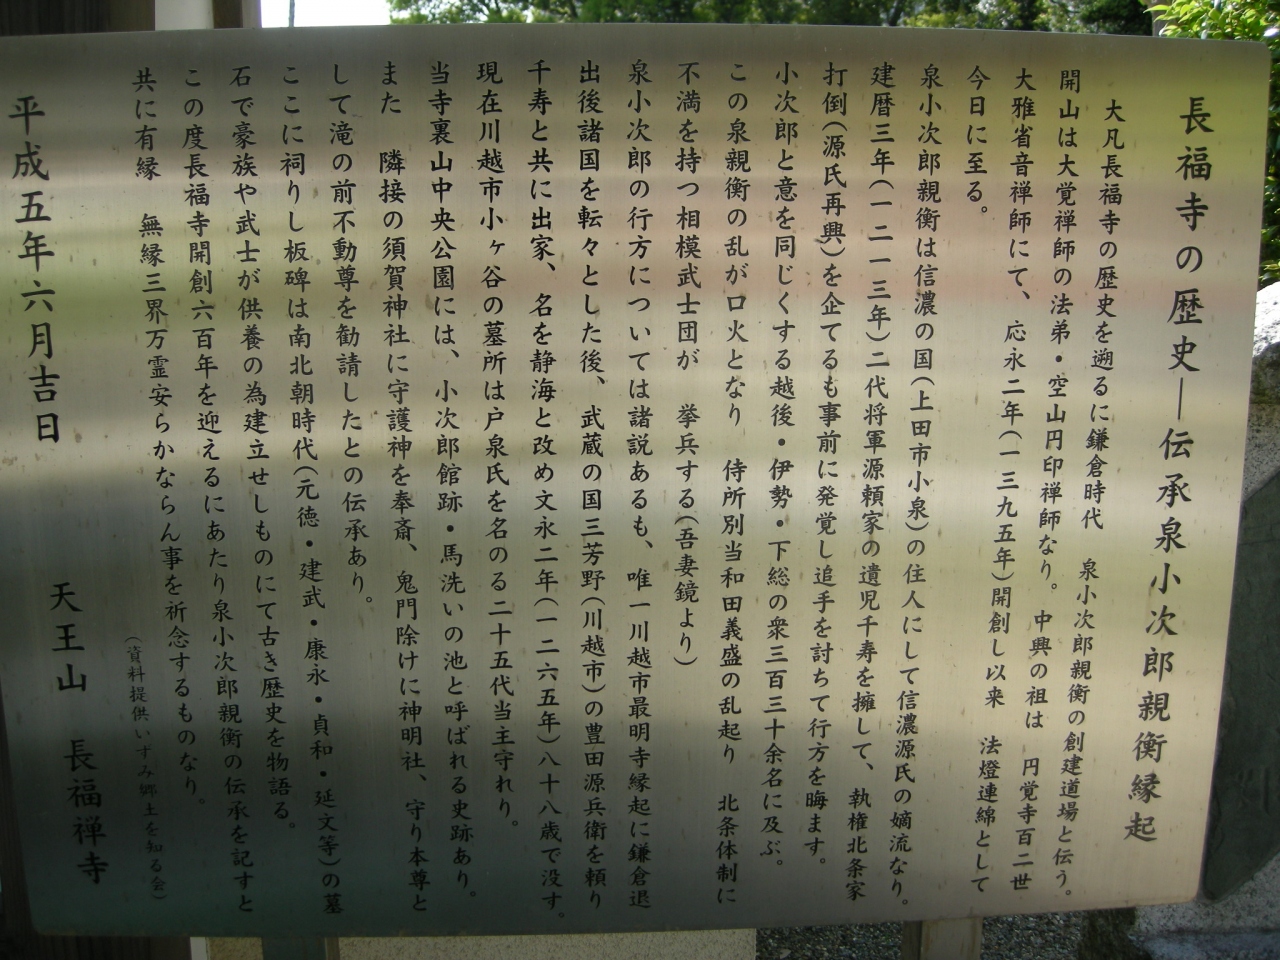 長福寺の歴史―伝承泉小次郎親衡縁起
大凡長福寺の歴史を遡るに鎌倉時代　泉小次郎親衡の創建道場と伝う。
開山は大覚禅師の法弟・空山円印禅師なり。中興の祖は　円覚寺百二世
大雅省音禅師にて、応永二年(一三九五年)開創し以来　法燈連綿として
今日に至る。
泉小次郎親衡は信濃の国(上田市小泉)の住人にして信濃源氏の嫡流なり。
建暦三年(一二一三年)二代将軍源頼家の遺児千寿を擁して、執権北条家
打倒(源氏再興)を企てるも事前に発覚し追手を討ちて行方を晦ます。
小次郎と意を同じくする越後・伊勢・下総の衆三百三十余名に及ぶ。
この泉親衡の乱が口火となり　侍所別当和田義盛の乱起り　北条体制に
不満を持つ相模武士団が　挙兵する(吾妻鏡より)
泉小次郎の行方については諸説あるも、唯一川越市最明寺縁起に鎌倉退
出後諸国を転々とした後、武蔵の国三芳野(川越市)の豊田源兵衛を頼り
千寿と共に出家、名を静海と改め文永二年(一二六五年)八十八歳で没す。
現在川越市小ヶ谷の墓所は戸泉氏を名のる二十五代当主守れり。
当寺裏山中央公園には、小次郎館跡・馬洗いの池と呼ばれる史跡あり。
また　隣接の須賀神社に守護神を奉斎、鬼門除けに神明社、守り本尊と
して滝の前不動尊を勧請したとの伝承あり。
ここに祠りし板碑は南北朝時代(元徳・建武・康永・貞和・延文等)の墓
石で豪族や武士が供養の為建立せしものにて古き歴史を物語る。
この度長福寺開創六百年を迎えるにあたり泉小次郎親衡の伝承を記すと
共に有縁　無縁三界万霊安らかならん事を祈念するものなり。
(資料提供いずみ郷土を知る会)
平成五年六月吉日
天王山　長福禅寺